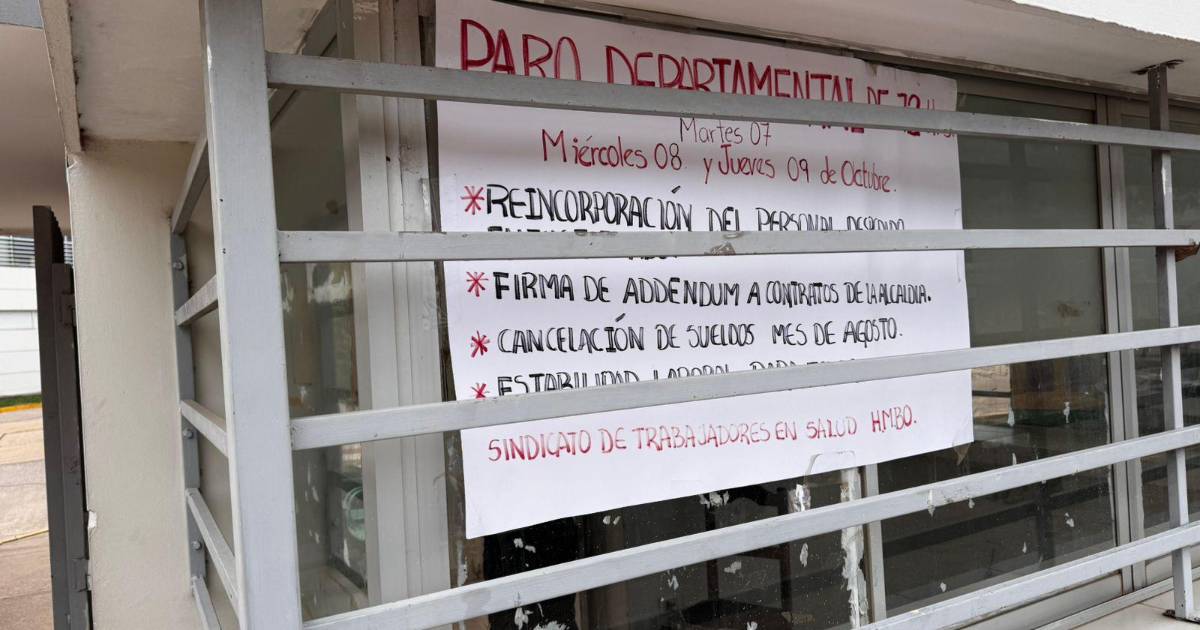 PARO DEPARTAMENTAL DE 72 Hrs.
Martes 07
Miércoles 08 y Jueves 09 de Octubre.
* REINCORPORACIÓN DEL PERSONAL DESPEDIDO
* FIRMA DE ADDENDUM A CONTRATOS DE LA ALCALDIA.
* CANCELACIÓN DE SUELDOS MES DE AGOSTO.
* ESTABILIDAD LABORAL PARA
SINDICATO DE TRABAJADORES EN SALUD HMBO.